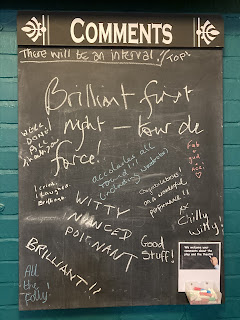 COMMENTS
There will be an interval!
Brilliant first
night – tour de
force!
WELL
DONE!
ALL
accolades all
round!!!
(including wardrobe)
Fab
I cried
I laughed
Brilliant
Congratulations!
on a wonderful
performance!!
WITTY
NUANCED
POIGNANT
Chilly
Witty!
Good
Stuff!
BRILLIANT!!
All
the
We welcome your
comments about the
play and the theatre